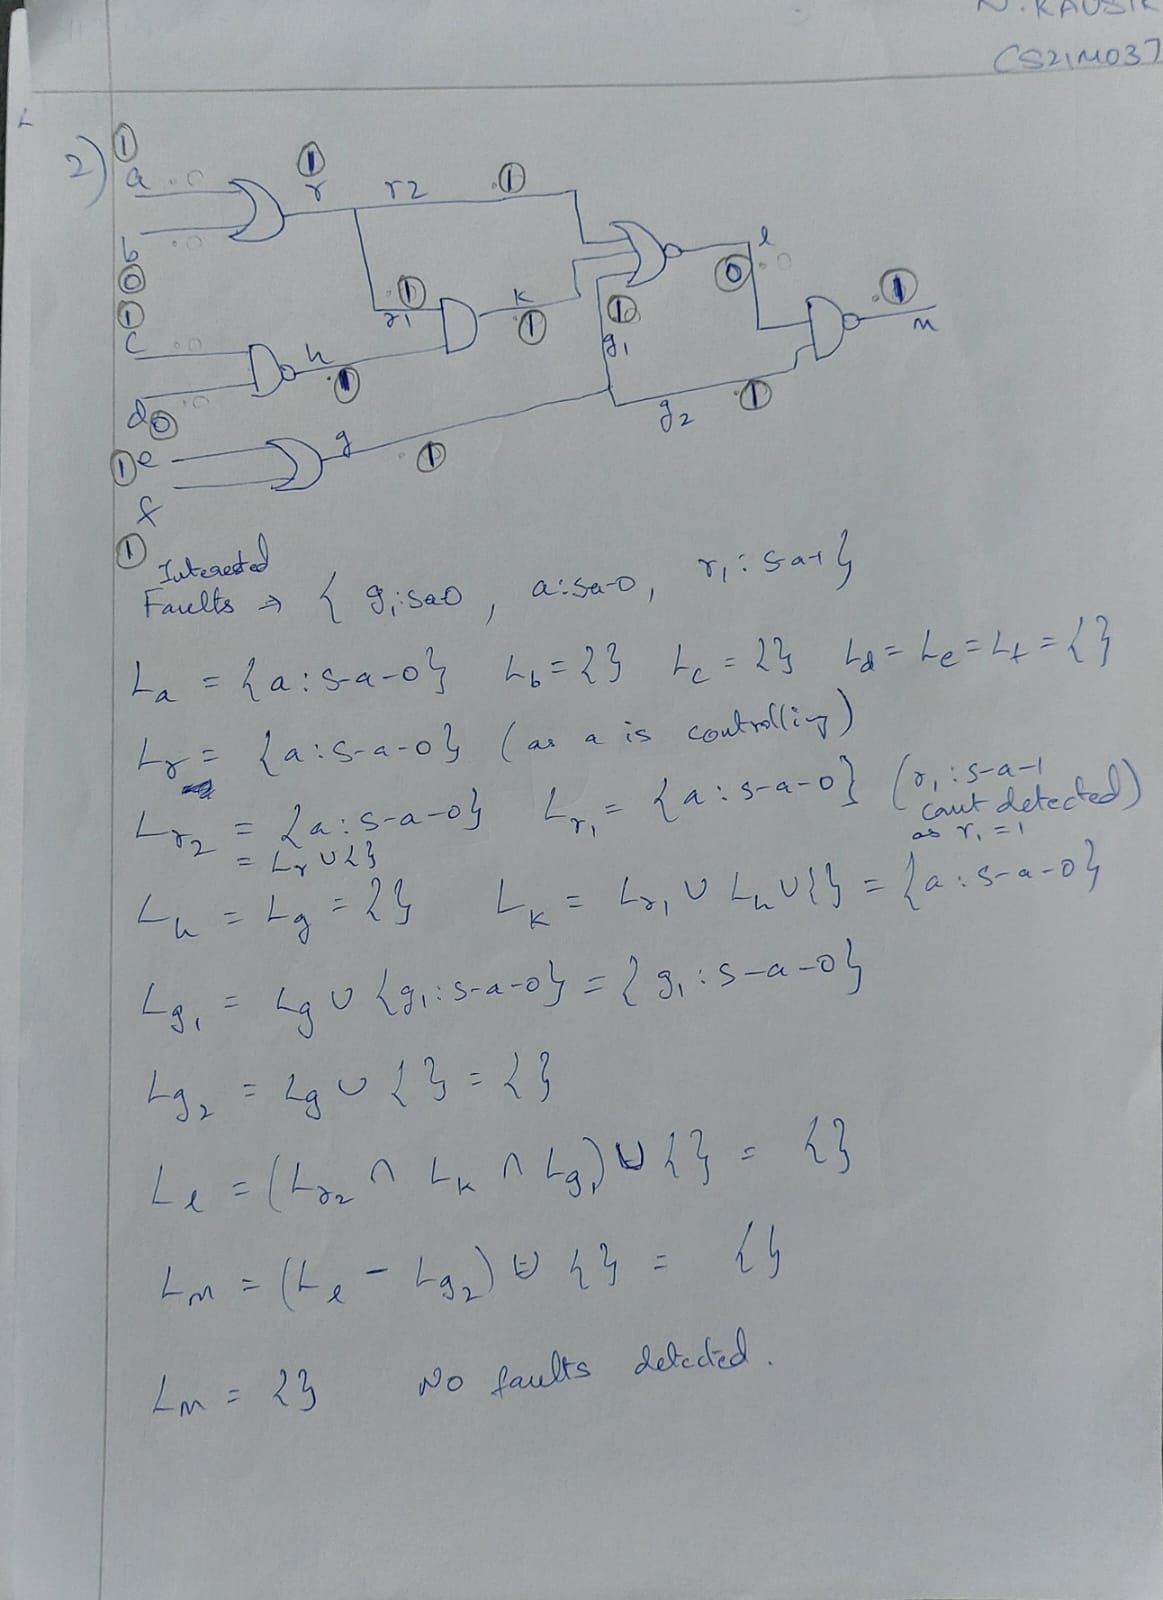 N. KAUSIK
CS21M037
2)
1
a
b
0
1
c
d 0
1 e
f
1
1
r
r2
1
1
r1
k
1
h
1
g
1
1
g1
g2
1
l
0
1
m
Interested
Faults → { g1:sa0 , a:sa-0, r1 : s-a-1 }
La = {a:s-a-0} Lb = {} Lc = {} Ld = Le = Lf = {}
Lr = {a:s-a-0} (as a is controlling)
Lr2 = {a:s-a-0} Lr1 = {a:s-a-0} (r1 : s-a-1
cant detected)
= Lr ∪ {} as r1 = 1
Lh = Lg = {} Lk = Lr1 ∪ Lh ∪ {} = {a:s-a-0}
Lg1 = Lg ∪ {g1:s-a-0} = {g1:s-a-0}
Lg2 = Lg ∪ {} = {}
Ll = (Lr2 ∩ Lk ∩ Lg1) ∪ {} = {}
Lm = (Ll - Lg2) ∪ {} = {}
Lm = {} No faults detected.